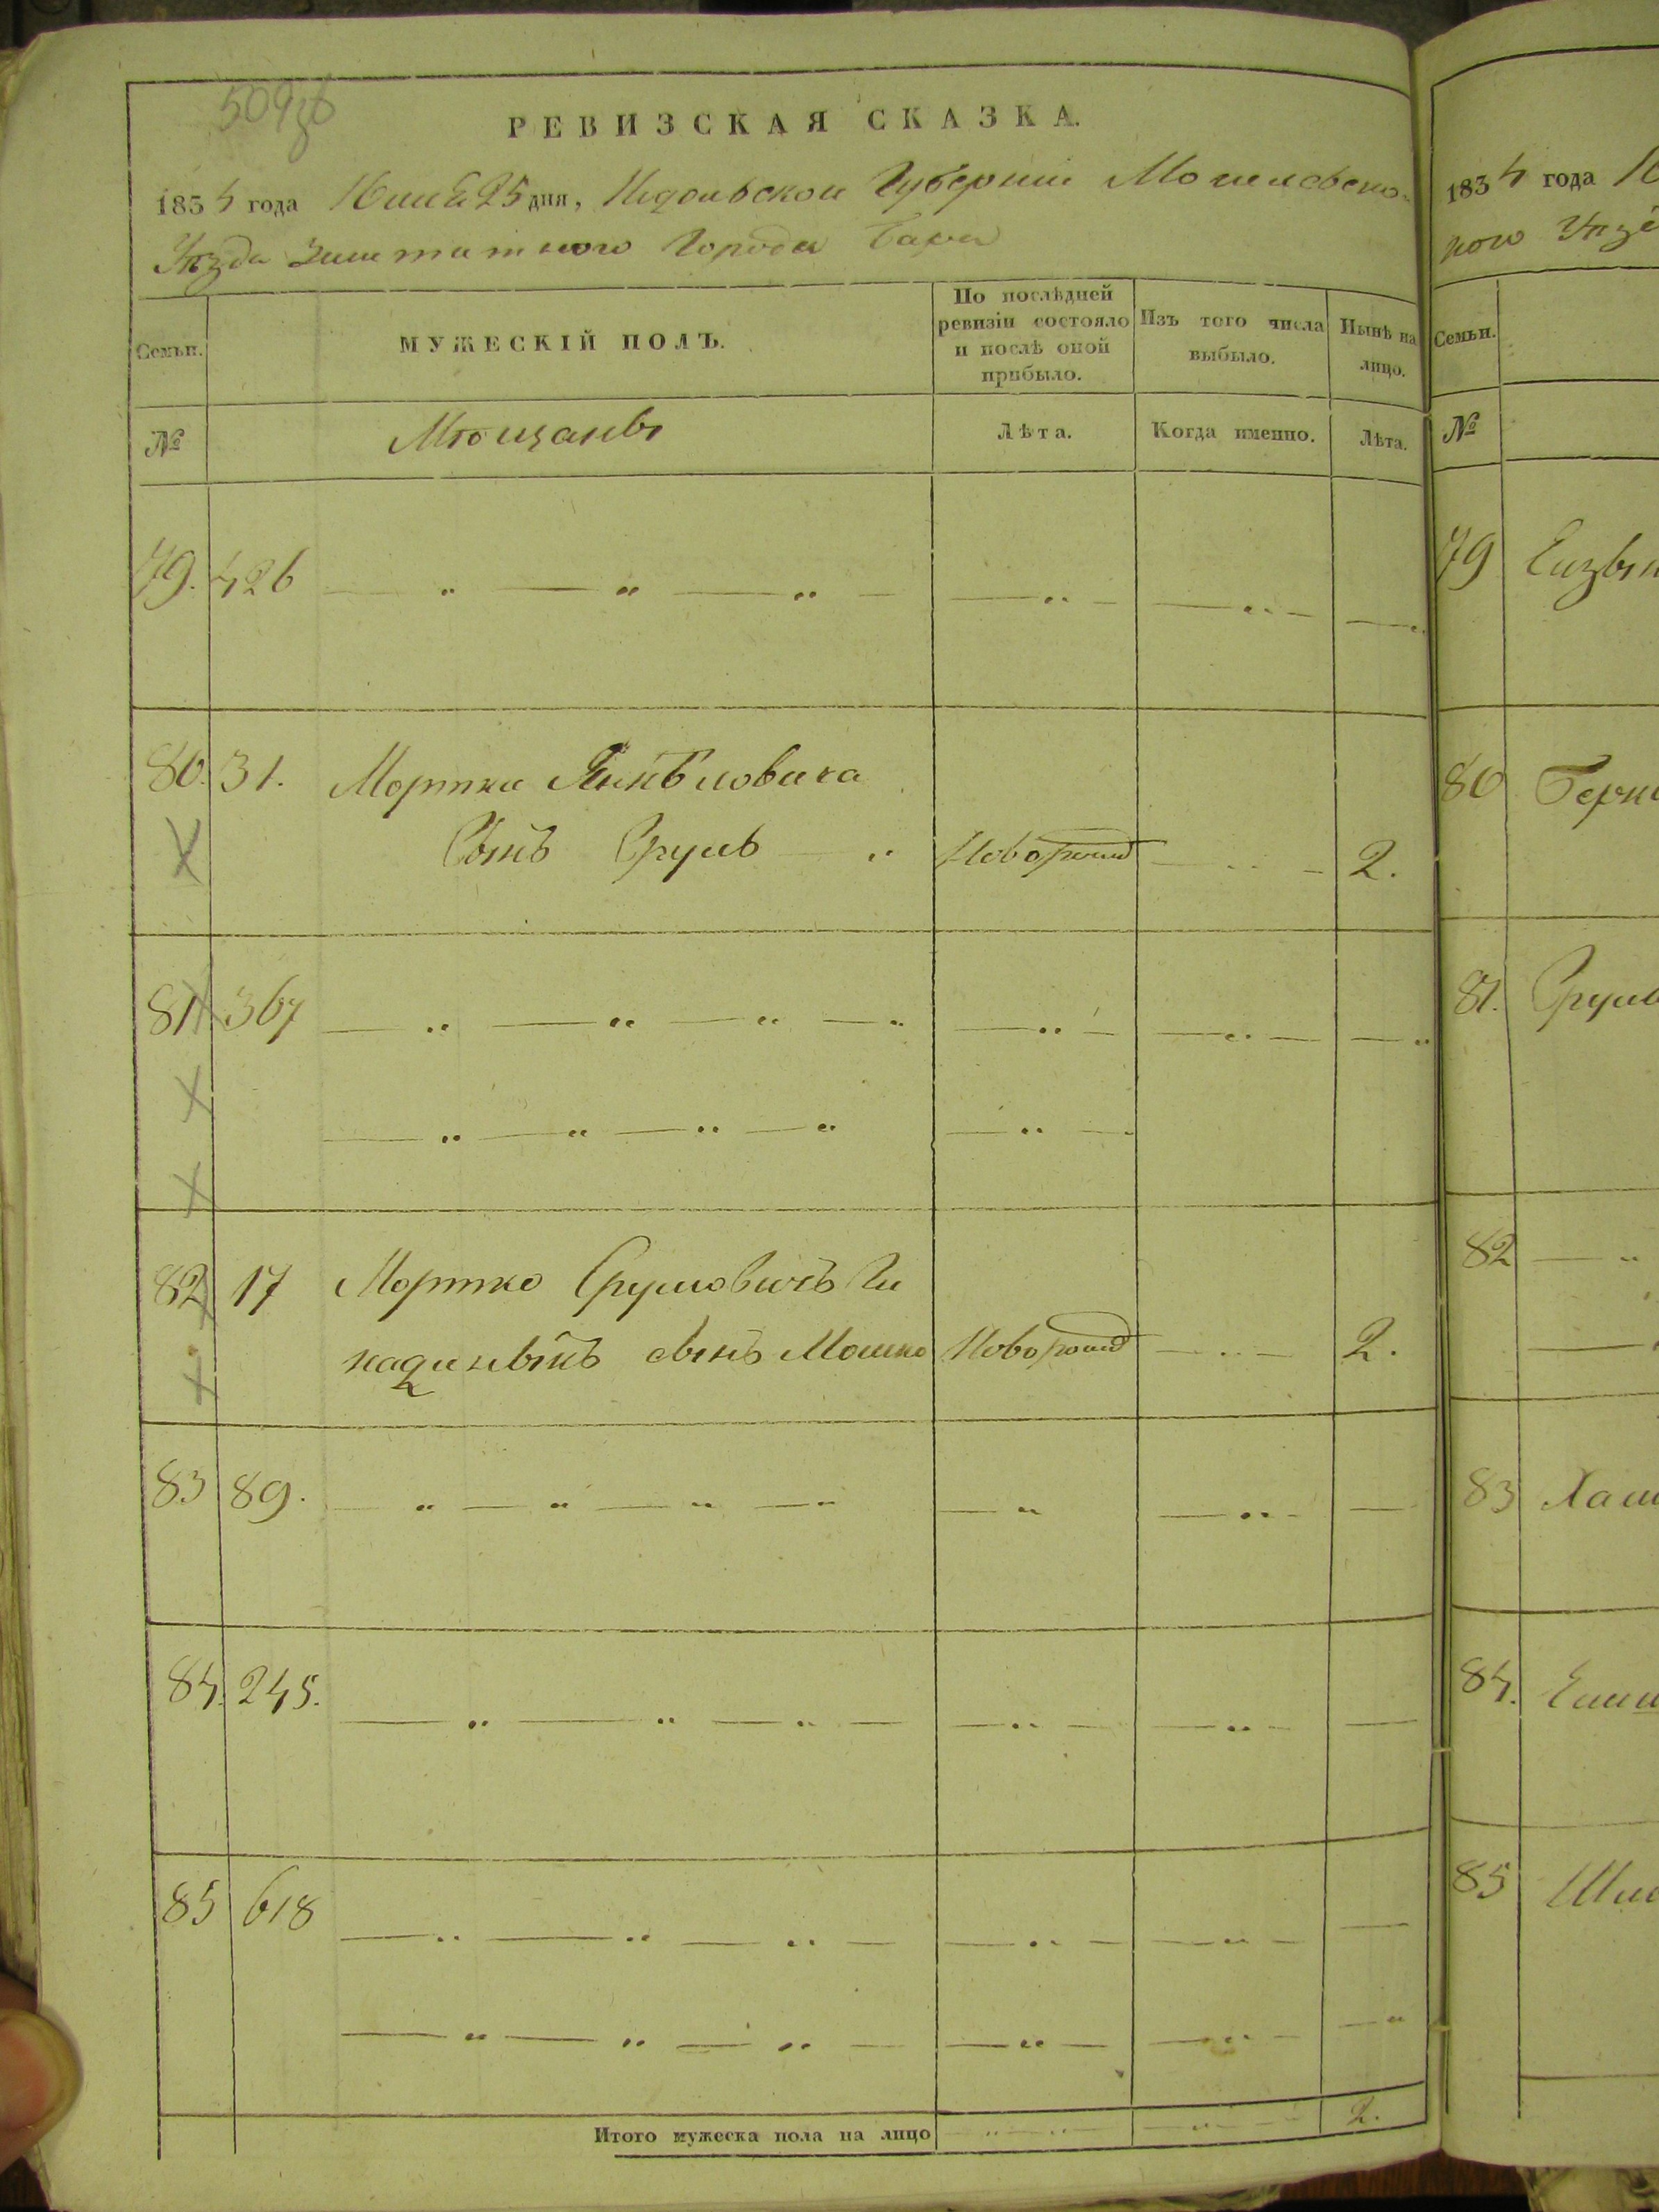 509 об
РЕВИЗСКАЯ СКАЗКА.
1834 года Юния 25 дня, Подольской Губернии Могилевско-
Уѣзда Заштатного Города Бара
Семьи.
МУЖЕСКІЙ ПОЛЪ.
По послѣдней ревизіи состояло и послѣ оной прибыло.
Изъ того числа выбыло.
Нынѣ на лицо.
№
Мѣщанъ
Лѣта.
Когда именно.
Лѣта.
79. 426
80. 31. Мортка Янкѣловича
Сынъ Срулъ Новорожд 2.
81 367
82 17 Мортко Срулович Ги
надиныкъ сынъ Мошко Новорожд 2.
83 89.
84. 245.
85 618
Итого мужеска пола на лицо 2.
1834 года
ного Уѣзд
Семьи.
№
79
80
81. Срул
82
83
84.
85